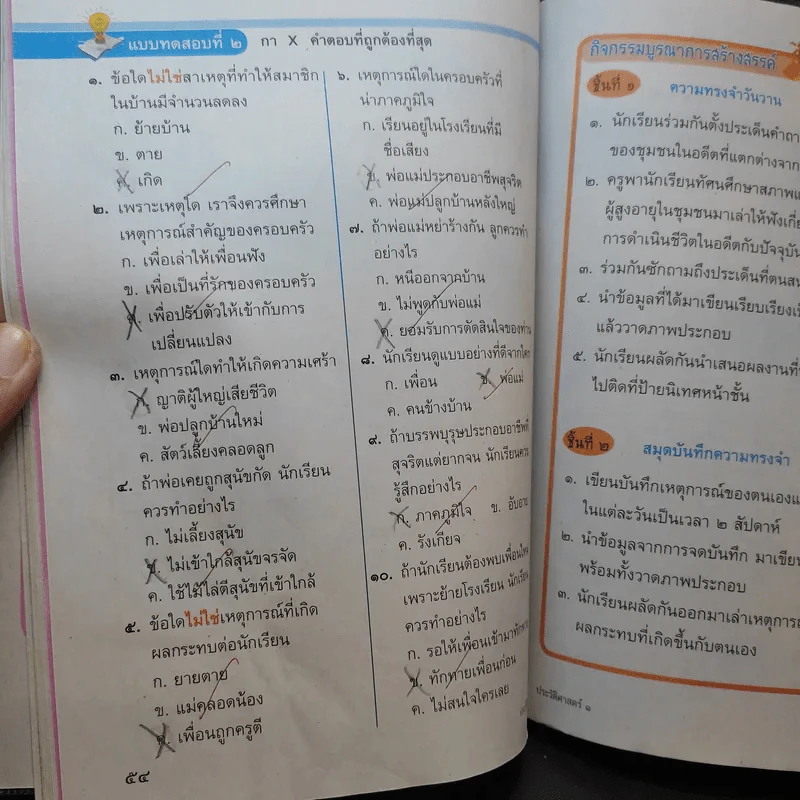 แบบทดสอบที่ ๒ กา X คำตอบที่ถูกต้องที่สุด
๑. ข้อใดไม่ใช่สาเหตุที่ทำให้สมาชิก
ในบ้านมีจำนวนลดลง
ก. ย้ายบ้าน
ข. ตาย
ค. เกิด
๒. เพราะเหตุใด เราจึงควรศึกษา
เหตุการณ์สำคัญของครอบครัว
ก. เพื่อเล่าให้เพื่อนฟัง
ข. เพื่อเป็นที่รักของครอบครัว
ค. เพื่อปรับตัวให้เข้ากับการ
เปลี่ยนแปลง
๓. เหตุการณ์ใดทำให้เกิดความเศร้า
ก. ญาติผู้ใหญ่เสียชีวิต
ข. พ่อปลูกบ้านใหม่
ค. สัตว์เลี้ยงคลอดลูก
๔. ถ้าพ่อเคยถูกสุนัขกัด นักเรียน
ควรทำอย่างไร
ก. ไม่เลี้ยงสุนัข
ข. ไม่เข้าใกล้สุนัขจรจัด
ค. ใช้ไม้ไล่ตีสุนัขที่เข้าใกล้
๕. ข้อใดไม่ใช่เหตุการณ์ที่เกิด
ผลกระทบต่อนักเรียน
ก. ยายตาย
ข. แม่คลอดน้อง
ค. เพื่อนถูกครูตี
๕๔
๖. เหตุการณ์ใดในครอบครัวที่
น่าภาคภูมิใจ
ก. เรียนอยู่ในโรงเรียนที่มี
ชื่อเสียง
ข. พ่อแม่ประกอบอาชีพสุจริต
ค. พ่อแม่ปลูกบ้านหลังใหญ่
๗. ถ้าพ่อแม่หย่าร้างกัน ลูกควรทำ
อย่างไร
ก. หนีออกจากบ้าน
ข. ไม่พูดกับพ่อแม่
ค. ยอมรับการตัดสินใจของท่าน
๘. นักเรียนดูแบบอย่างที่ดีจากใคร
ก. เพื่อน ข. พ่อแม่
ค. คนข้างบ้าน
๙. ถ้าบรรพบุรุษประกอบอาชีพที่
สุจริตแต่ยากจน นักเรียนควร
รู้สึกอย่างไร
ก. ภาคภูมิใจ ข. อับอาย
ค. รังเกียจ
๑๐. ถ้านักเรียนต้องพบเพื่อนใหม่
เพราะย้ายโรงเรียน นักเรียน
ควรทำอย่างไร
ก. รอให้เพื่อนเข้ามาทัก
ข. ทักทายเพื่อนก่อน
ค. ไม่สนใจใครเลย
กิจกรรมบูรณาการสร้างสรรค์
ชิ้นที่ ๑ ความทรงจำวันวาน
๑. นักเรียนร่วมกันตั้งประเด็นคำถา
ของชุมชนในอดีตที่แตกต่างจาก
๒. ครูพานักเรียนทัศนศึกษาสภาพแ
ผู้สูงอายุในชุมชนมาเล่าให้ฟังเกี่
การดำเนินชีวิตในอดีตกับปัจจุบัน
๓. ร่วมกันซักถามถึงประเด็นที่ตนส
๔. นำข้อมูลที่ได้มาเขียนเรียบเรียง
แล้ววาดภาพประกอบ
๕. นักเรียนผลัดกันนำเสนอผลงานที่
ไปติดที่ป้ายนิเทศหน้าชั้น
ชิ้นที่ ๒ สมุดบันทึกความทรงจำ
๑. เขียนบันทึกเหตุการณ์ของตนเองแ
ในแต่ละวันเป็นเวลา ๒ สัปดาห์
๒. นำข้อมูลจากการจดบันทึก มาเขียน
พร้อมทั้งวาดภาพประกอบ
๓. นักเรียนผลัดกันออกมาเล่าเหตุการ
ผลกระทบที่เกิดขึ้นกับตนเอง
ประวัติศาสตร์ ๑